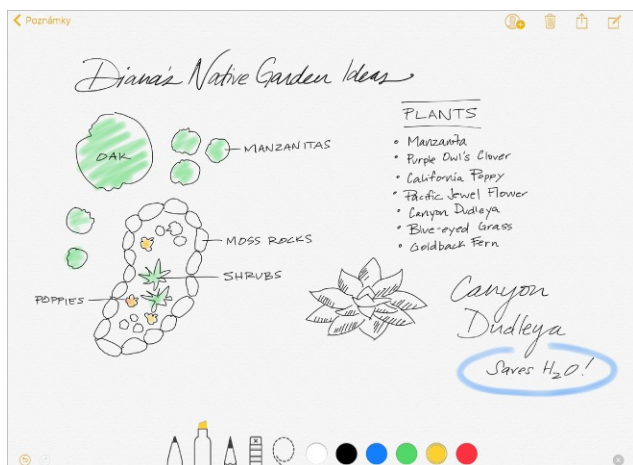 Poznámky
Diana's Native Garden Ideas
OAK
MANZANITAS
MOSS ROCKS
SHRUBS
POPPIES
PLANTS
• Manzanita
• Purple Owl's Clover
• California Poppy
• Pacific Jewel Flower
• Canyon Dudleya
• Blue-eyed Grass
• Goldback Fern
Canyon
Dudleya
Saves H₂O!